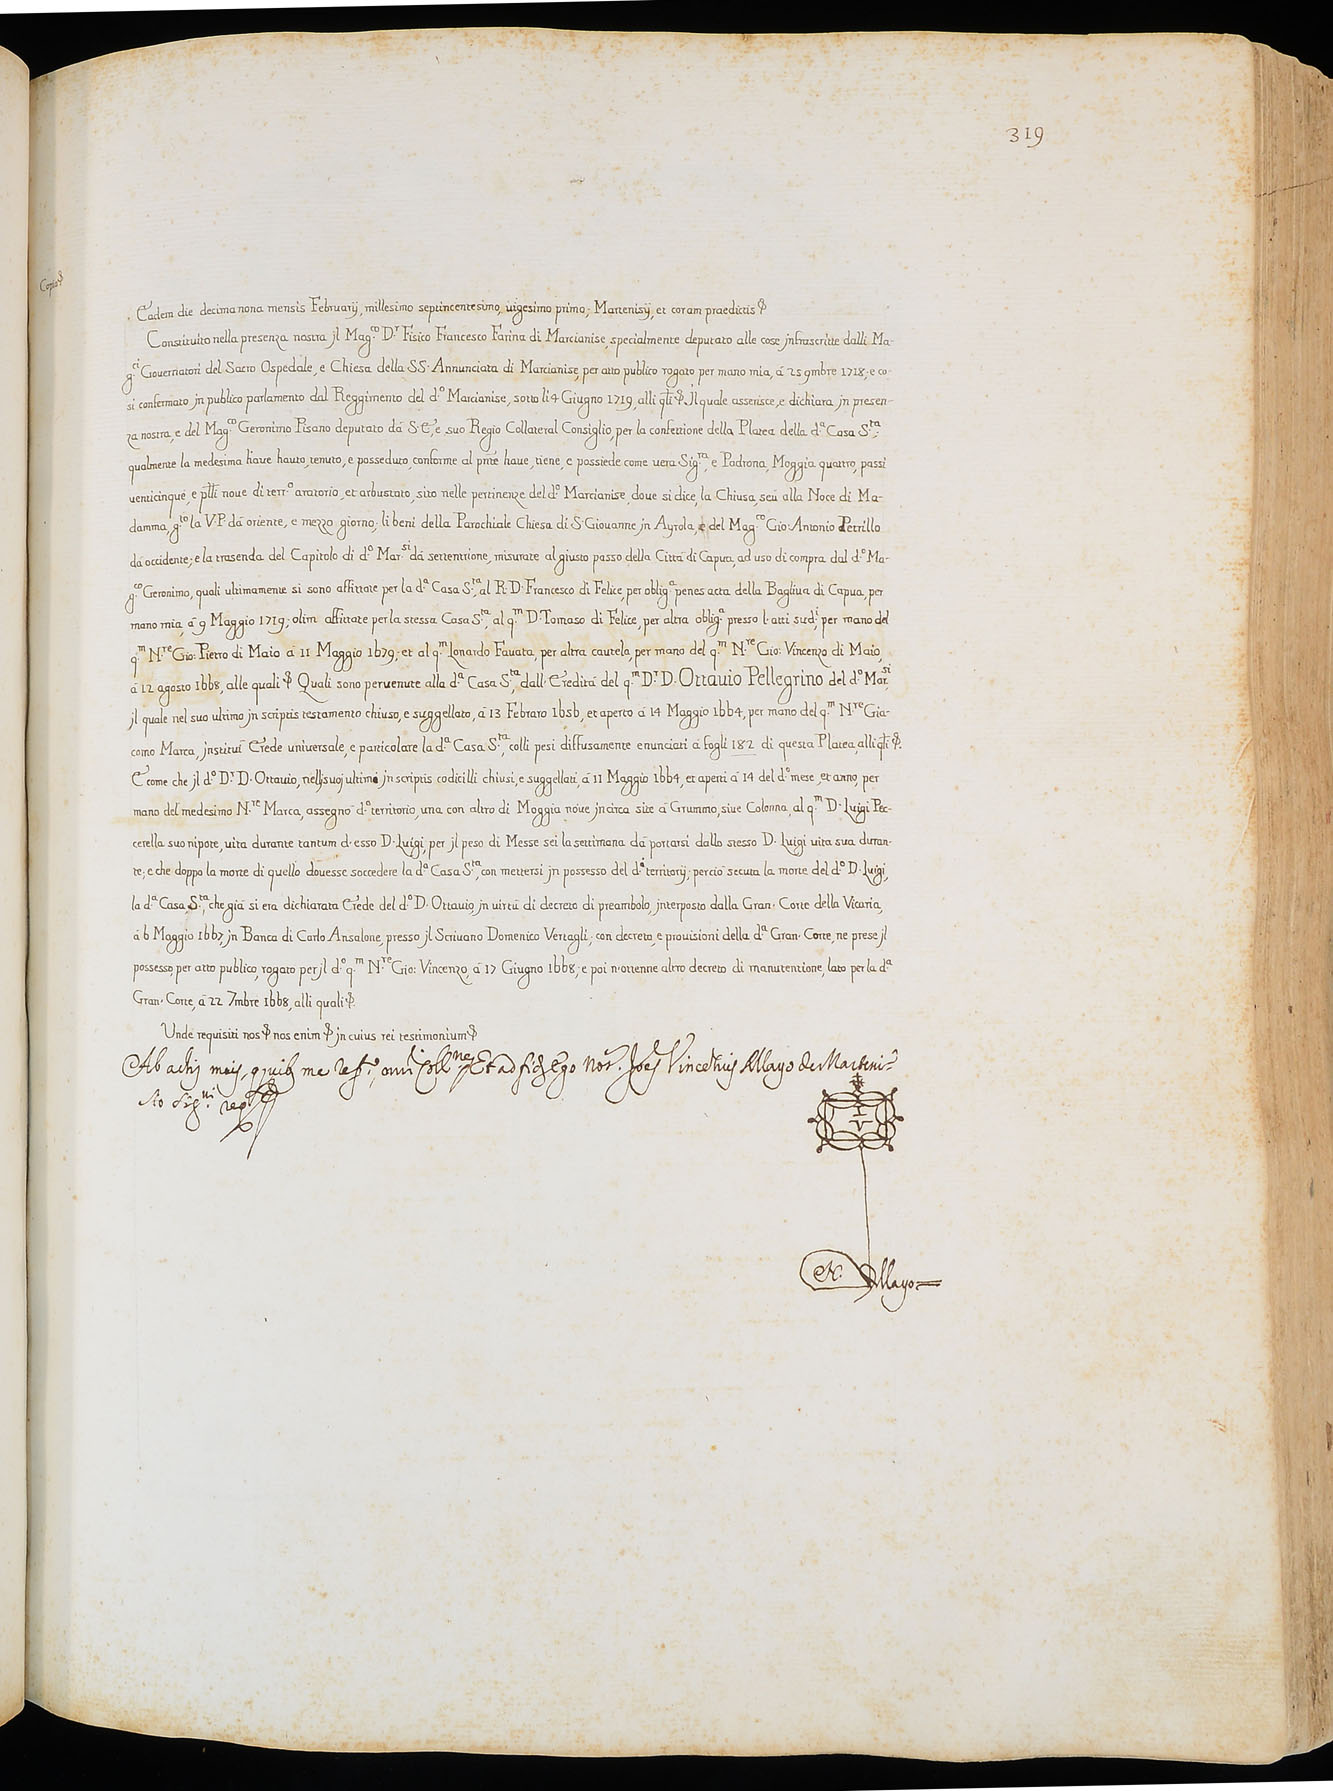 319
Copia
Eadem die decimanona mensis Februarij, millesimo septincentesimo, uigesimo primo; Martenisij, et coram praedictis
Constituito nella presenza nostra jl Mag.co D.r Fisico Francesco Farina di Marcianise, specialmente deputato alle cose jnfrascritte dalli Ma-
g.ci Gouernatori del Sacro Ospedale, e Chiesa della SS. Annunciata di Marcianise, per atto publico rogato per mano mia, à 25 9mbre 1718; e co-
si confermato jn publico parlamento dal Reggimento del d.o Marcianise, sotto li 4 Giugno 1719, alli qli. Jl quale asserisce, e dichiara jn presen-
za nostra, e del Mag.co Geronimo Pisano deputato dà S. E, e suo Regio Collateral Consiglio, per la confettione della Platea della d.a Casa S.ta;
qualmente la medesima haue hauto, tenuto, e posseduto, conforme al pnte haue, tiene, e possiede come uera Sig.ra, e Padrona, Moggia quattro, passi
uenticinque, e plli noue di terr.o aratorio, et arbustato, sito nelle pertinenze del d.o Marcianise, doue si dice, la Chiusa, seù alla Noce di Ma-
damma, g.to la V. P. dà oriente, e mezzo giorno; li beni della Parochiale Chiesa di S. Giouanne jn Ayrola, e del Mag.co Gio: Antonio Petrillo
dà occidente; e la trasenda del Capitolo di d.o Mar.si dà settentrione, misurate al giusto passo della Città di Capua, ad uso di compra dal d.o Ma-
g.co Geronimo, quali ultimamente si sono affittate per la d.a Casa S.ta, al R. D. Francesco di Felice, per oblig.a penes acta della Bagliua di Capua, per
mano mia, à 9 Maggio 1719; olim affittate per la stessa Casa S.ta, al q.m D. Tomaso di Felice, per altra oblig.a presso l. atti sud.i, per mano del
q.m N.re Gio: Pietro di Maio à 11 Maggio 1679; et al q.m Lonardo Fauata, per altra cautela, per mano del q.m N.re Gio: Vincenzo di Maio,
à 12 agosto 1668, alle quali Quali sono peruenute alla d.a Casa S.ta, dall. Eredità del q.m D.r D. Ottauio Pellegrino del d.o Mar.si,
jl quale nel suo ultimo jn scriptis testamento chiuso, e suggellato, à 13 Febraro 1656, et aperto à 14 Maggio 1664, per mano del q.m N.re Gia-
como Marca, jnstituì Erede uniuersale, e particolare la d.a Casa S.ta, colli pesi diffusamente enunciati à fogli 182 di questa Platea, alli qli.
E come che jl d.o D.r D. Ottauio, nelli suoj ultimi jn scriptis codicilli chiusi, e suggellati, à 11 Maggio 1664, et aperti à 14 del d.o mese, et anno, per
mano del medesimo N.re Marca, assegnò d.o territorio, una con altro di Moggia noue jn circa site à Grummo, siue Colonna, al q.m D. Luigi Pec-
cerella suo nipote, uita durante tantum d. esso D. Luigi, per jl peso di Messe sei la settimana dà portarsi dallo stesso D. Luigi uita sua duran-
te; e che doppo la morte di quello douesse soccedere la d.a Casa S.ta, con mettersi jn possesso del d.i territorij; perciò secuta la morte del d.o D. Luigi,
la d.a Casa S.ta, che già si era dichiarata Erede del d.o D. Ottauio, jn uirtù di decreto di preambolo, jnterposto dalla Gran. Corte della Vicaria,
à 6 Maggio 1667, jn Banca di Carlo Ansalone, presso jl Scriuano Domenico Vertagli, con decreto, e prouisioni della d.a Gran. Corte, ne prese jl
possesso, per atto publico, rogato per jl d.o q.m N.re Gio: Vincenzo, à 17 Giugno 1668; e poi n. ottenne altro decreto di manutentione, lato per la d.a
Gran. Corte, à 22 7mbre 1668, alli quali.
Unde requisiti nos nos enim jn cuius rei testimonium
Ab actis meis, me Et ad fid. Ego Not. Joes Vincentius Mayo de Marteni.o
sig.ui
N. Mayo